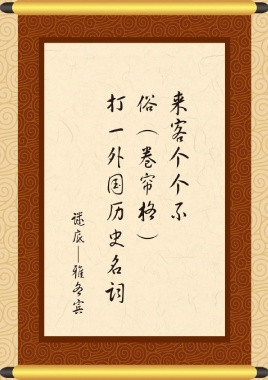 来客个个不
俗（卷帘格）
打一外国历史名词
谜底——雅各宾